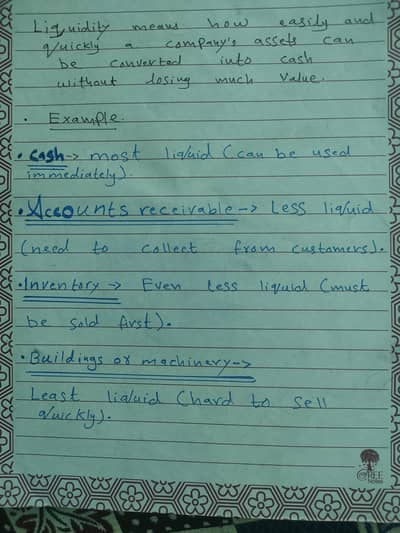 Liquidity means how easily and
quickly a company's assets can
be converted into cash
without losing much value.
• Example.
• Cash -> most liquid (can be used
immediately).
• Accounts receivable -> Less liquid
(need to collect from customers).
• Inventory -> Even less liquid (must
be sold first).
• Buildings or machinery ->
Least liquid (hard to sell
quickly).
TREE
Notes